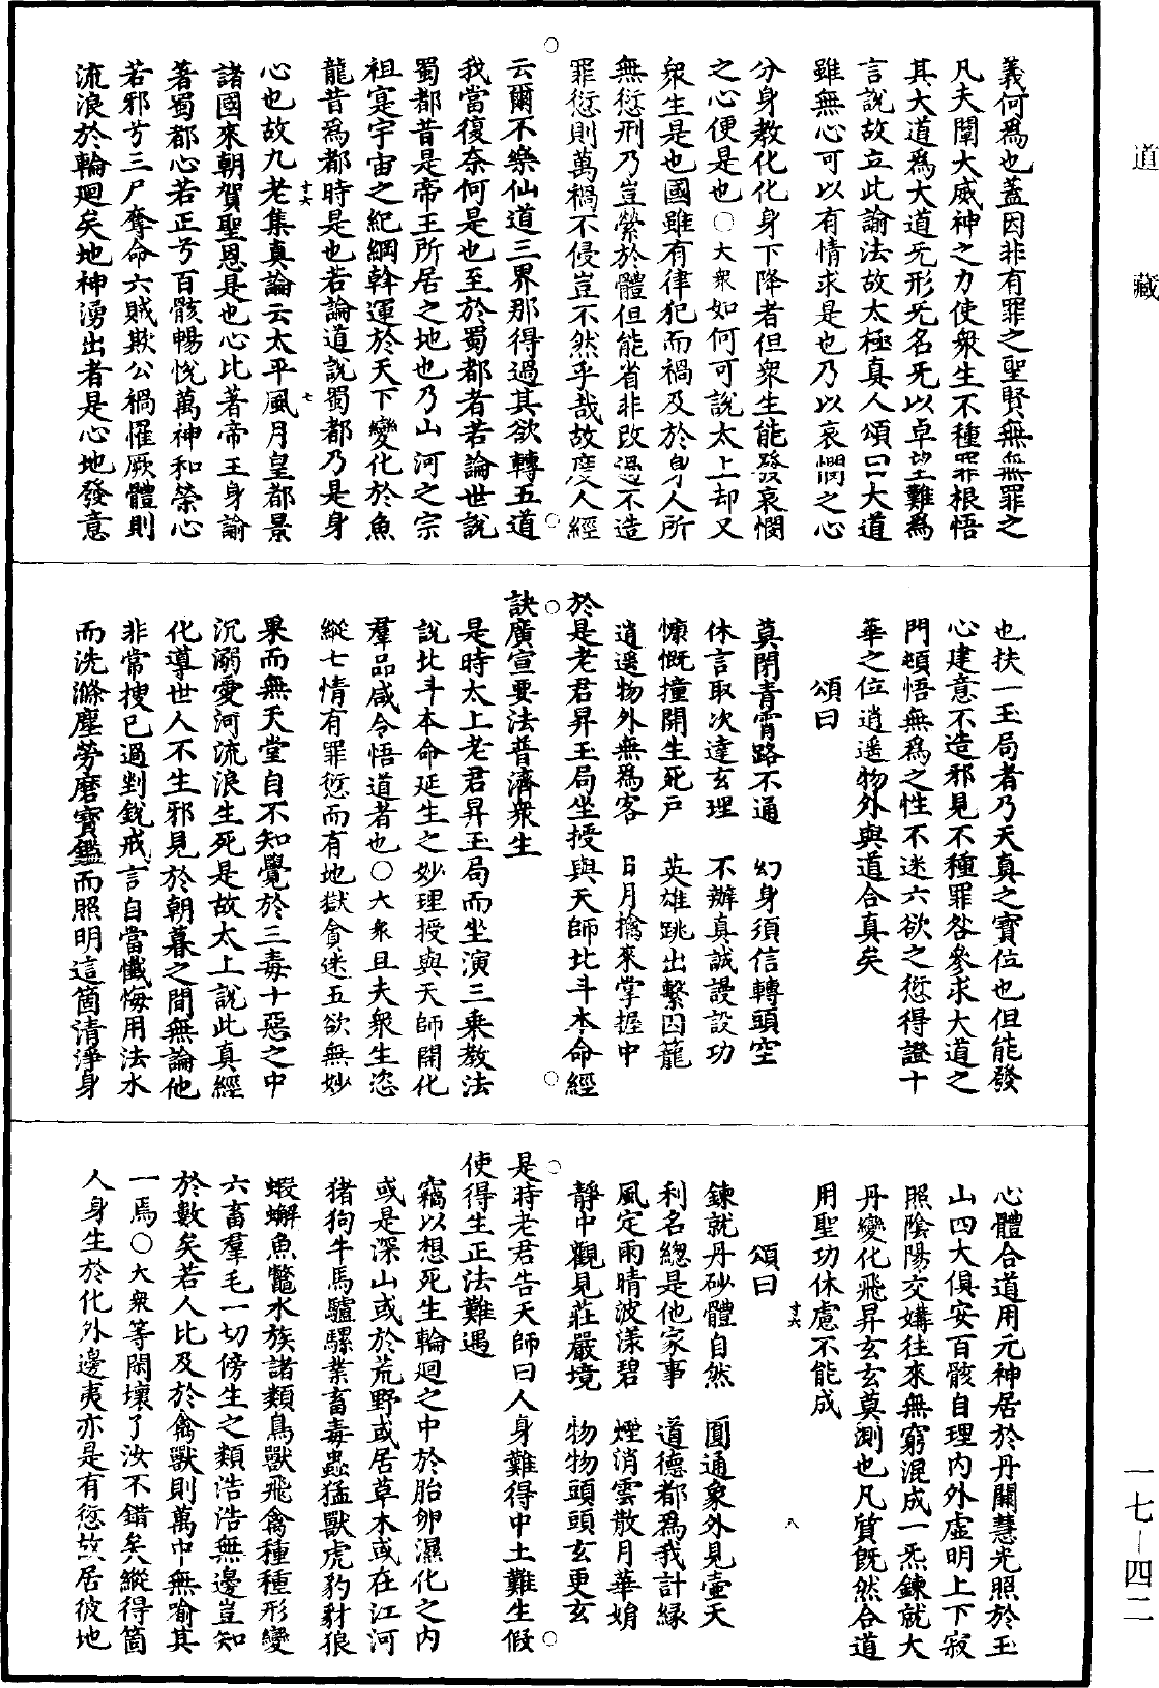 道藏
義何為也蓋因非有罪之聖賢無無罪之
凡夫闡大威神之力使衆生不種罪根悟
其大道為大道旡形旡名旡以卓望難為
言說故立此諭法故太極真人頌曰大道
雖無心可以有情求是也乃以哀憫之心
分身教化化身下降者但衆生能發哀憫
之心便是也○大衆如何可說太上却又
衆生是也國雖有律犯而禍及於身人所
無愆刑乃豈縈於體但能省非改過不造
罪愆則萬禍不侵豈不然乎哉故度人經
云爾不樂仙道三界那得過其欲轉五道
我當復奈何是也至於蜀都者若論世說
蜀都昔是帝王所居之地也乃山河之宗
祖寔宇宙之紀綱斡運於天下變化於魚
龍昔為都時是也若論道說蜀都乃是身
十六 七
心也故九老集真論云太平風月皇都景
諸國來朝賀聖恩是也心比著帝王身諭
著蜀都心若正兮百骸暢悅萬神和榮心
若邪兮三尸奪命六賊欺公禍罹厥體則
流浪於輪廻矣地神湧出者是心地發意
也扶一玉局者乃天真之寶位也但能發
心建意不造邪見不種罪咎參求大道之
門頓悟無為之性不迷六欲之愆得證十
華之位逍遥物外與道合真矣
頌曰
莫閉青霄路不通 幻身須信轉頭空
休言取次達玄理 不辦真誠謾設功
慷慨撞開生死戶 英雄跳出繫囚籠
逍遥物外無為客 日月擒來掌握中
於是老君昇玉局坐授與天師北斗本命經
訣廣宣要法普濟衆生
是時太上老君昇玉局而坐演三乘教法
說北斗本命延生之妙理授與天師開化
羣品咸令悟道者也○大衆且夫衆生恣
縱七情有罪愆而有地獄貪迷五欲無妙
果而無天堂自不知覺於三毒十惡之中
沉溺愛河流浪生死是故太上說此真經
化導世人不生邪見於朝暮之間無論他
非常搜已過剉銳戒言自當懺悔用法水
而洗滌塵勞磨寶鑑而照明這箇清淨身
心體合道用元神居於丹闕慧光照於玉
山四大俱安百骸自理内外虚明上下寂
照陰陽交媾往來無窮混成一炁鍊就大
丹變化飛昇玄玄莫測也凡質旣然合道
用聖功休慮不能成
十六 八
頌曰
鍊就丹砂體自然 圓通象外見壷天
利名總是他家事 道德都為我計緣
風定雨晴波漾碧 煙消雲散月華娟
靜中觀見莊嚴境 物物頭頭玄更玄
是時老君告天師曰人身難得中土難生假
使得生正法難遇
竊以想死生輪廻之中於胎卵濕化之内
或是深山或於荒野或居草木或在江河
猪狗牛馬驢騾業畜毒蟲猛獸虎豹豺狼
蝦蠏魚鼈水族諸類鳥獸飛禽種種形變
六畜羣毛一切傍生之類浩浩無邊豈知
於數矣若人比及於禽獸則萬中無喻其
一焉○大衆等閑壞了汝不錯矣縱得箇
人身生於化外邊夷亦是有愆故居彼地
一七-四二